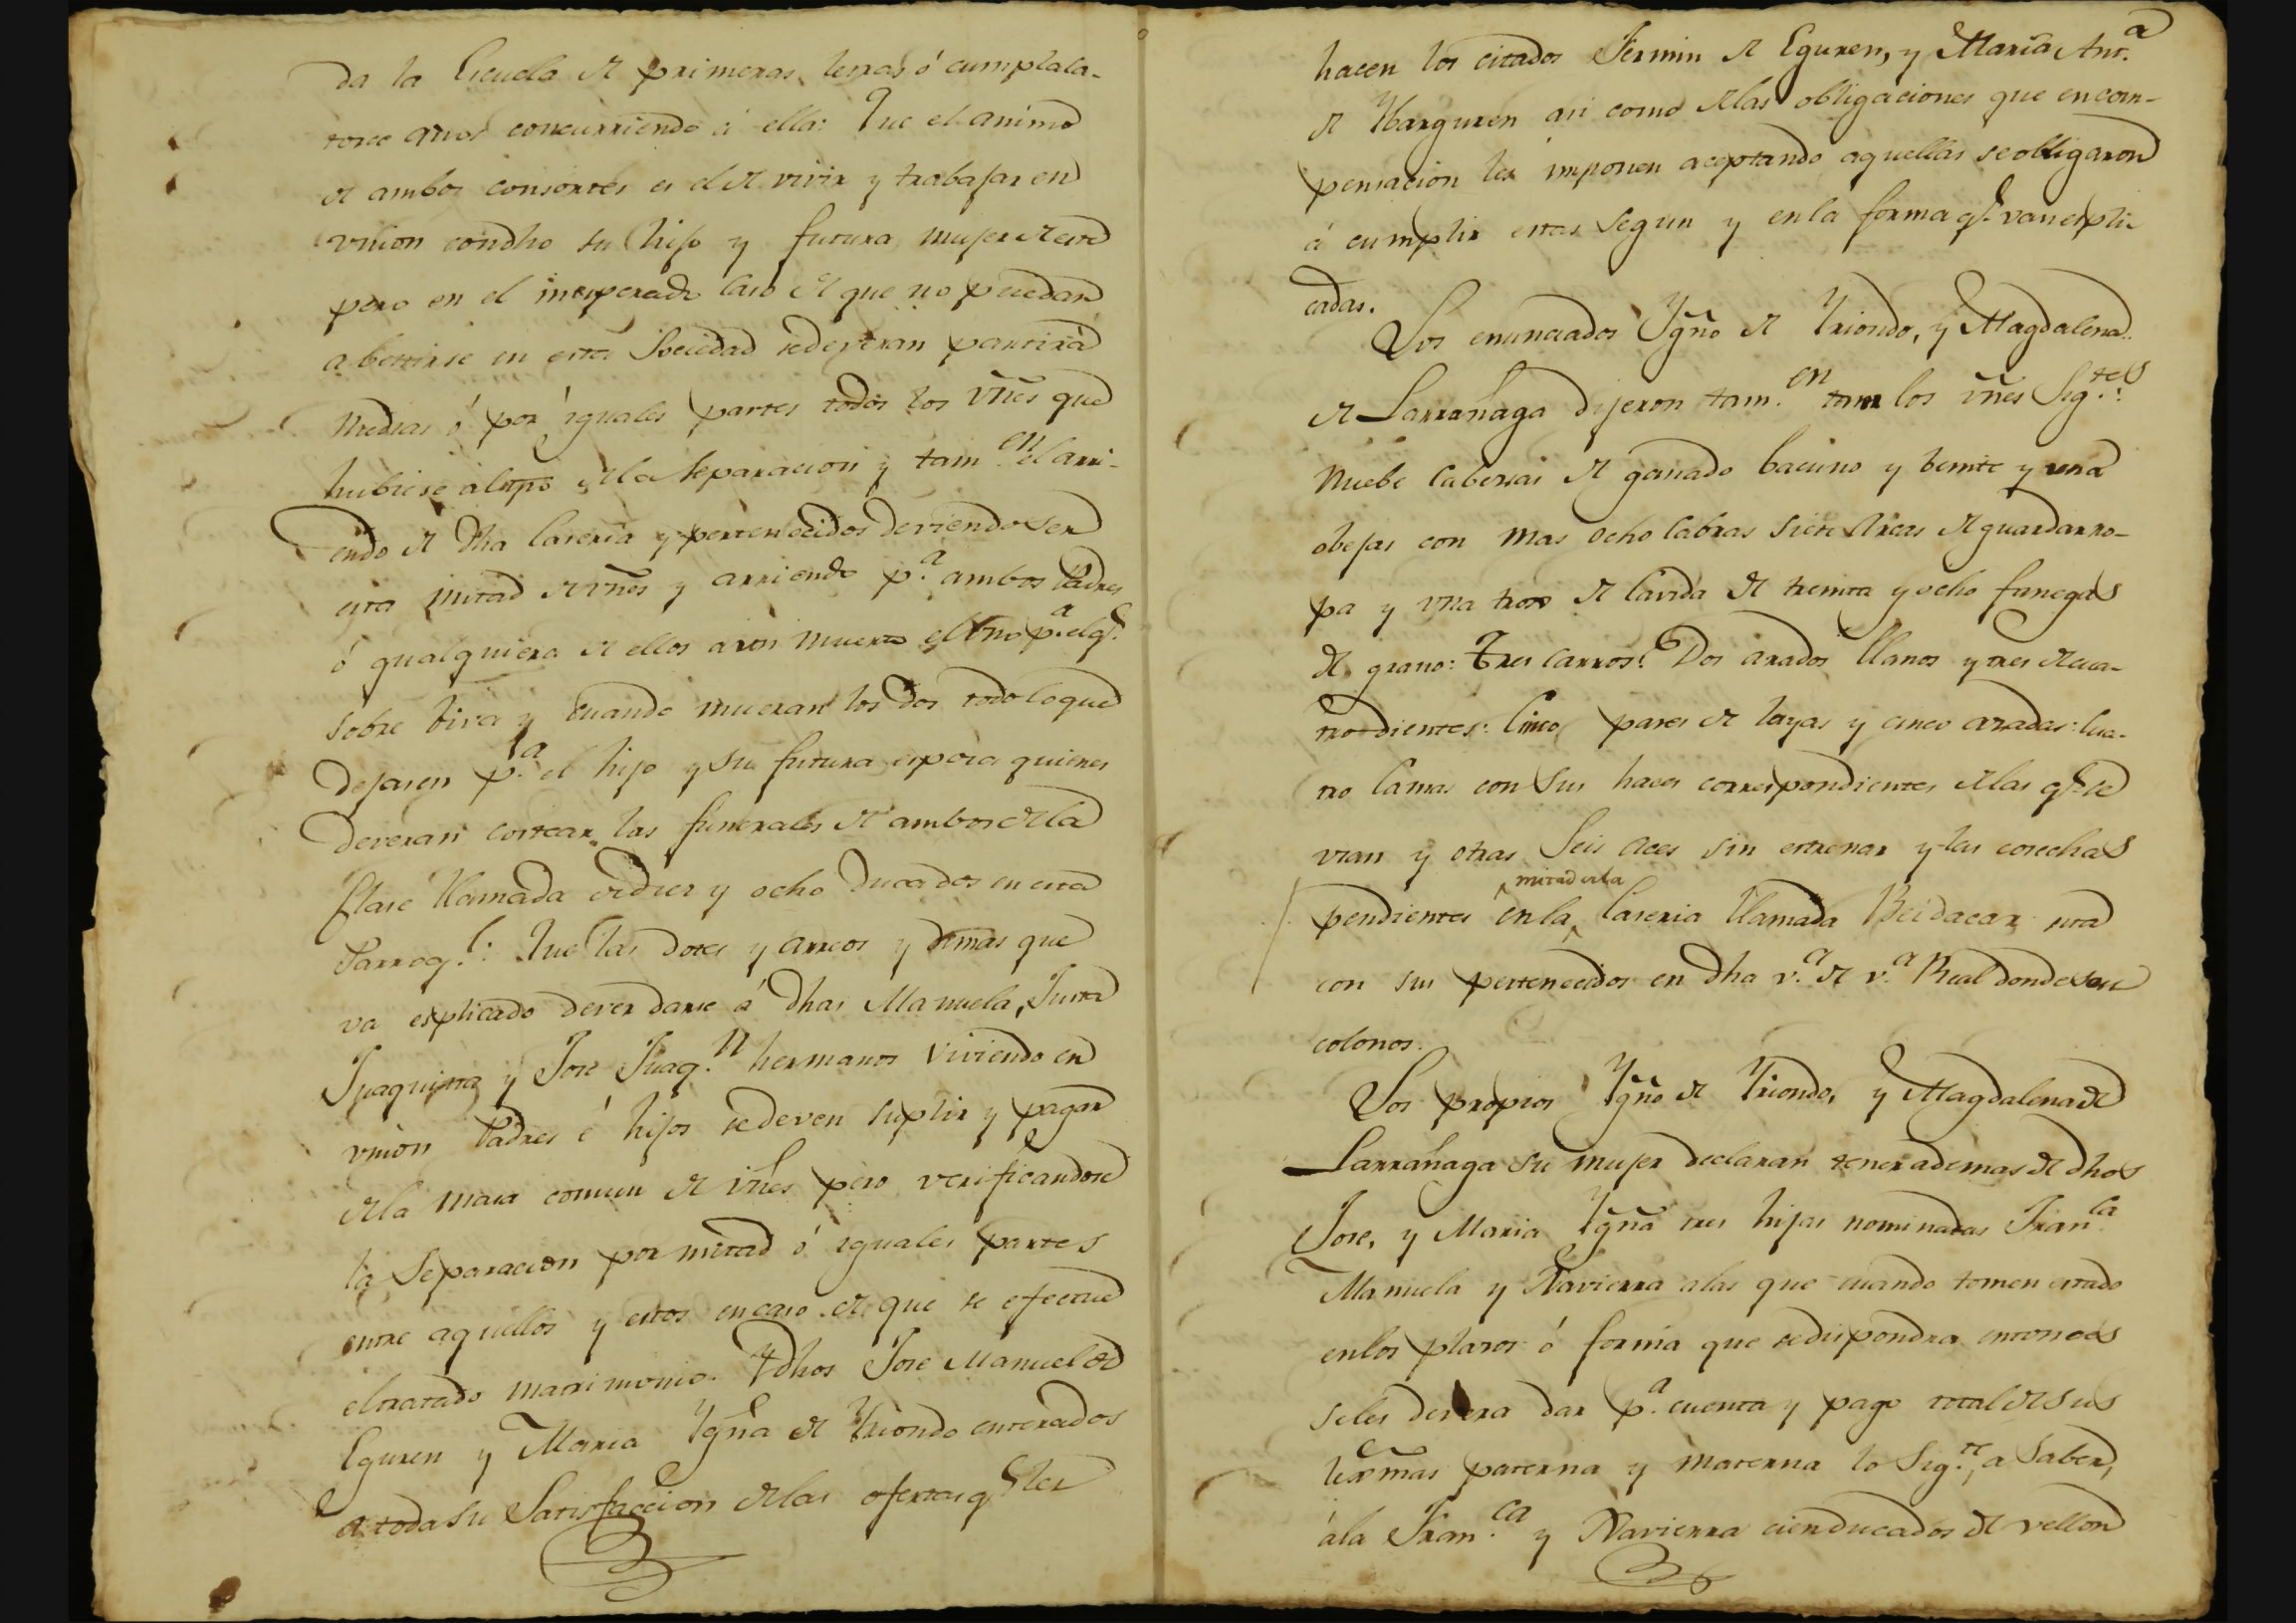 da la Escuela de primeras letras ó cumpla ca-
torce años concurriendo á ella: Que el animo
de ambos consortes es el de vivir y trabajar en
vnion con dho su hijo y futura mujer de este
pero en el inesperado caso de que no puedan
abenirse en esta Sociedad se deverán partir á
medias ó por iguales partes todos los vñes que
hubiese al tpõ de la Separacion y tam.en el arri-
endo de dha Caseria y pertenecidos deviendo ser
esta mitad de vñes y arriendo p.a ambos Padres
ó qualquiera de ellos a vien muerto el vno p.a el q.e
sobre biva y cuando mueran los dos todo lo que
dejasen p.a el hijo y su futura esposa quienes
deveran costear los funerales de ambos de la
Clase llamada vedier y ocho Ducados en esta
Parroq.l: Que las dotes y arreos y demas que
va esplicado dever darse á dhas Manuela, Justa
Juaquina y Jose Juaq.n hermanos viviendo en
vnion Padres é hijos se deven suplir y pagar
de la masa comun de vñes pero verificandose
la Separacion por mitad ó iguales partes
entre aquellos y estos en caso de que se efectue
el tratado matrimonio. Y dhos Jose Manuel de
Eguren y Maria Ygña de Yriondo enterados
a toda su Satisfaccion de las ofertas q.e les
hacen los citados Fermin de Eguren, y Maria Ant.a
de Ybarguren asi como de las obligaciones que en com-
pensacion les imponen aceptando aquellas se obligaron
á cumplir estas segun y en la forma q.e van espli-
cadas.
Los enunciados Ygño de Yriondo, y Magdalena
de Larrañaga dijeron tam.en los vñes Sig.tes:
Nuebe Cabezas de ganado bacuno y beinte y una
obejas con mas ocho Cabras siete Arcas de guardarro-
pa y vna troxe de Cavida de treinta y ocho fanegas
de grano: Tres Carros: Dos arados llanos y tres de cua-
tro dientes: Cinco pares de layas y cinco azadas: Cua-
tro Camas con sus haces correspondientes de las q.e se
vsan y otras Seis aces sin estrenar y las cosechas
pendientes en la mitad de la Caseria llamada Beidacar sita
con sus pertenecidos en dha v.a de v.a Real donde son
colonos.
Los propios Ygño de Yriondo, y Magdalena de
Larrañaga su mujer declaran tener ademas de dhos
Jose, y Maria Ygña tres hijas nominadas Fran.ca
Manuela y Xavierra a las que cuando tomen estado
en los plazos ó forma que se dispondra entonces
se les devera dar p.a cuenta y pago total de sus
lexmas paterna y materna lo Sig.te, a Saber,
á la Fran.ca y Xavierra cien ducados de vellon